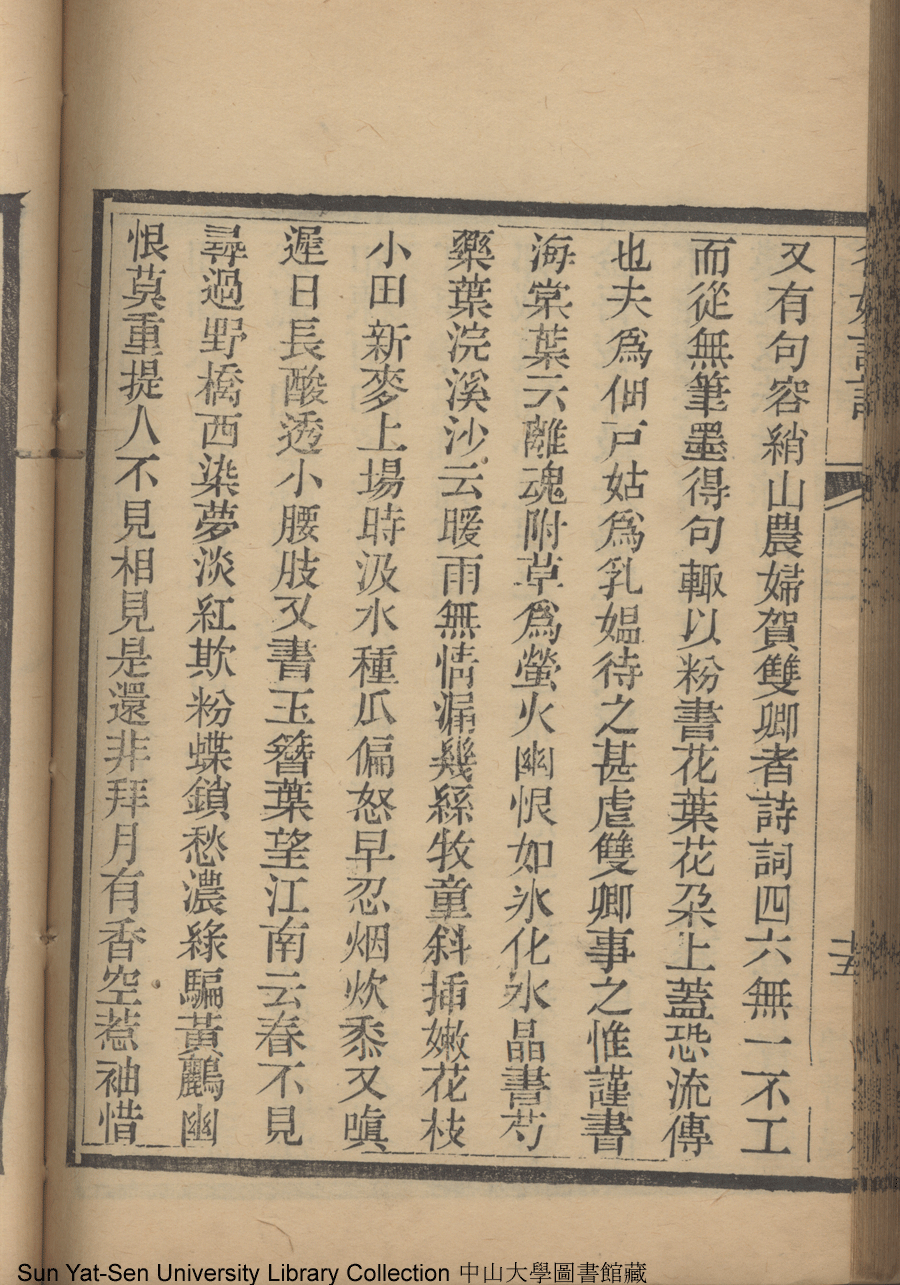 又有句容綃山農婦賀雙卿者詩詞四六無一不工
而從無筆墨得句輙以粉書花葉花朶上蓋恐流傳
也夫爲佃戸姑爲乳媪待之甚虐雙卿事之惟謹書
海棠葉云離魂附草爲螢火幽恨如氷化氷晶書芍
藥葉浣溪沙云暖雨無情漏幾絲牧童斜插嫩花枝
小田新麥上場時汲水種瓜偏怒早忍烟炊黍又嗔
遲日長酸透小腰肢又書玉簪葉望江南云春不見
尋過野橋西染夢淡紅欺粉蝶鎖愁濃綠騙黃鸝幽
恨莫重提人不見相見是還非拜月有香空惹袖惜
十五
Sun Yat-Sen University Library Collection 中山大學圖書館藏